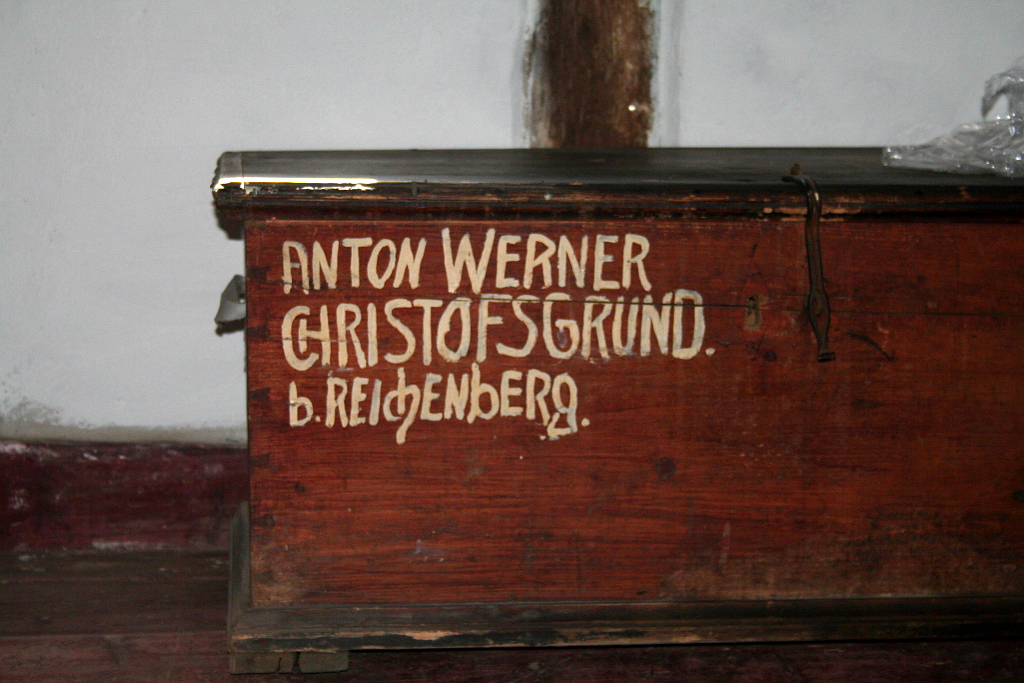 ANTON WERNER
CHRISTOFSGRUND.
b. REICHENBERG.